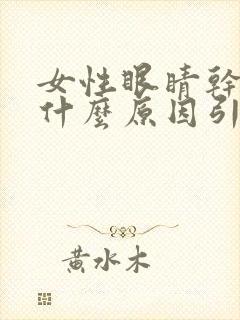 女性眼睛幹
什麼原因引
黃水木